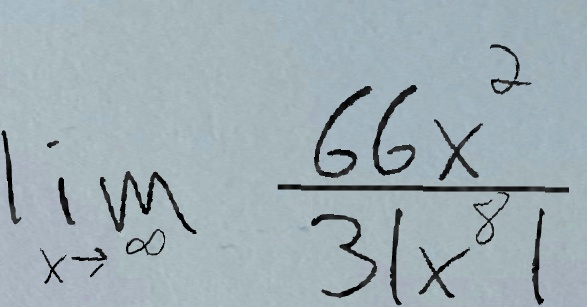 \lim_{x \to \infty} \frac{66x^2}{31x^8 1}